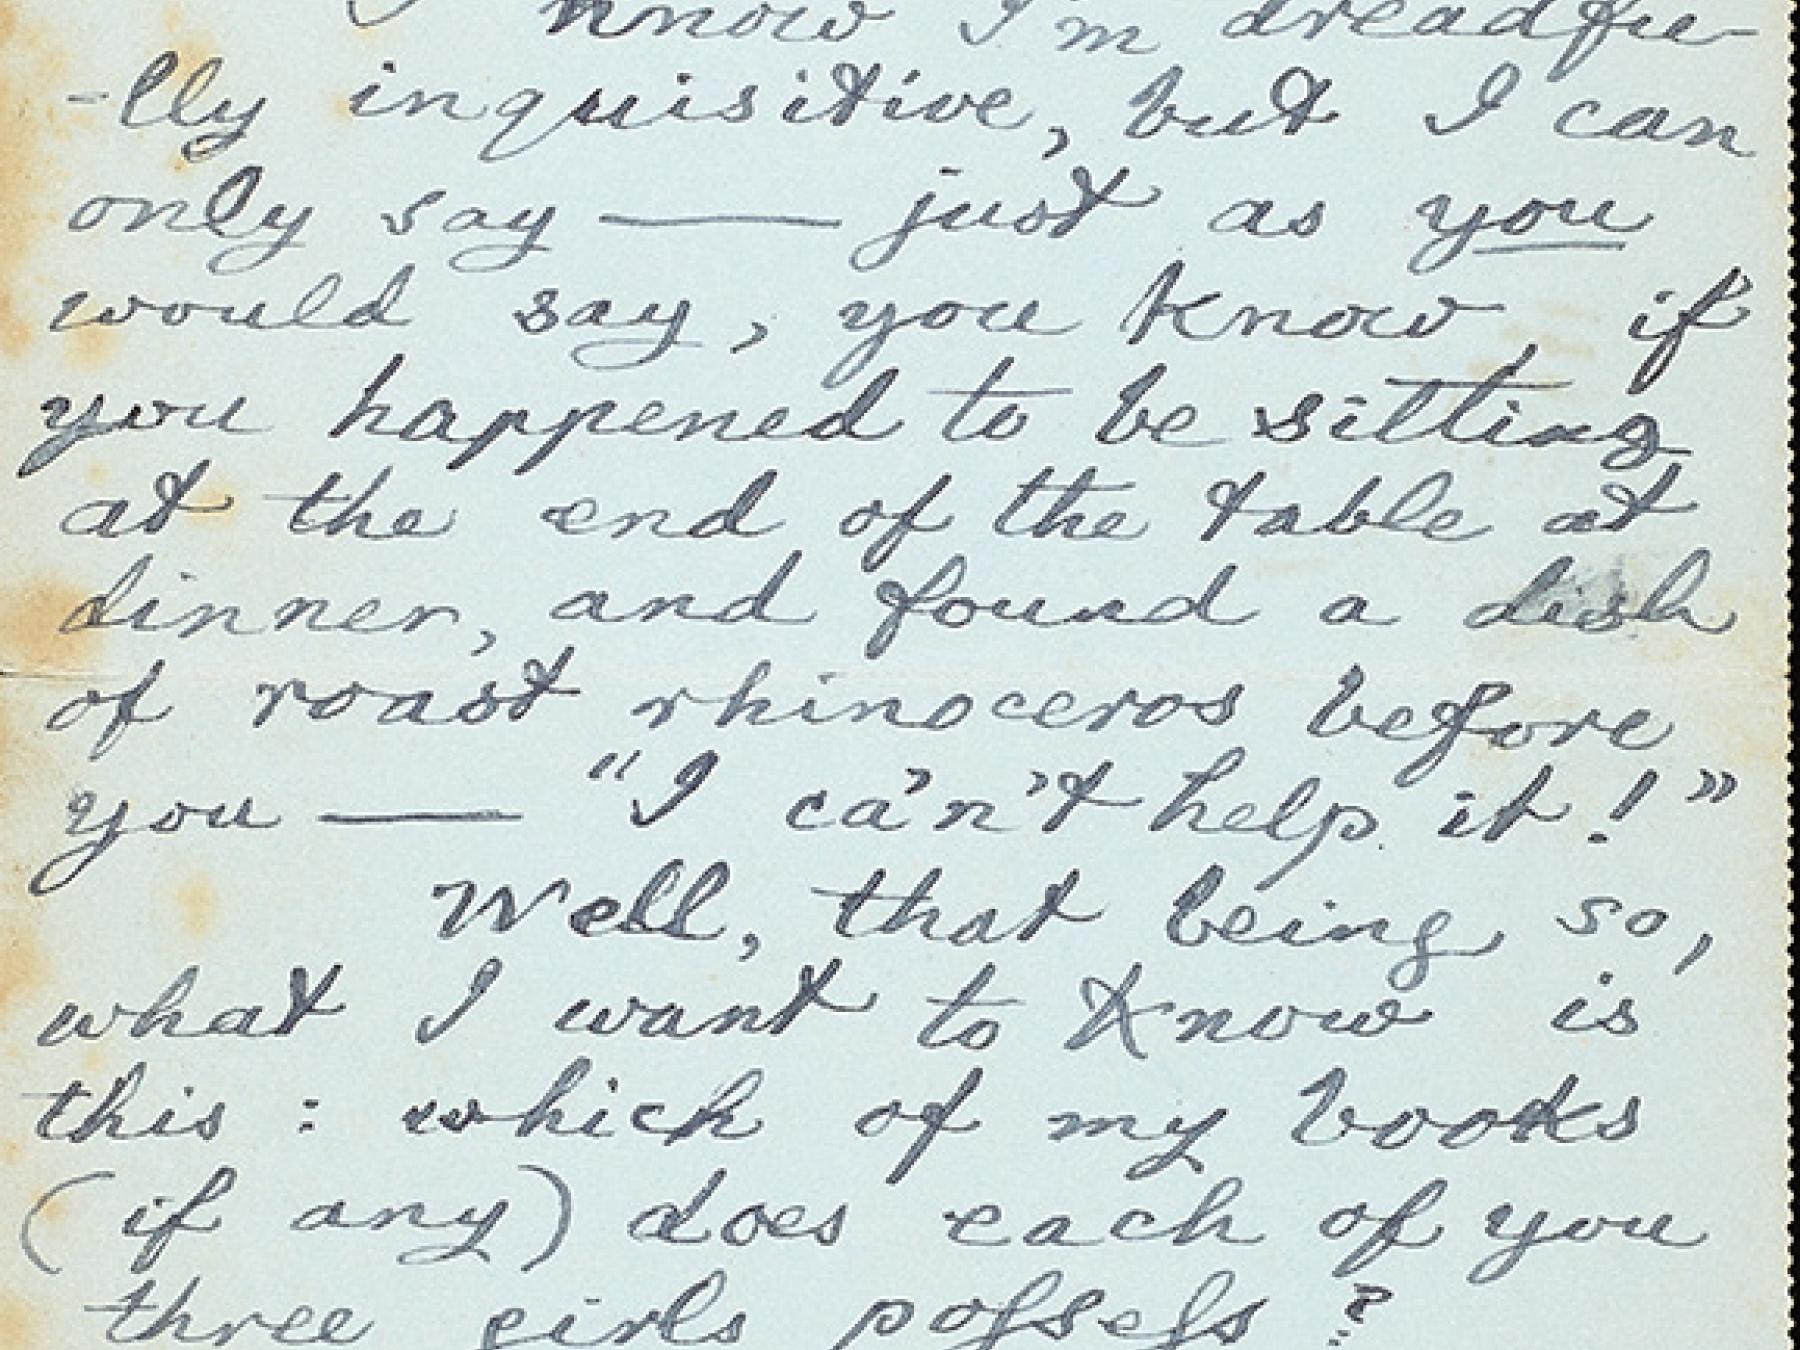 I know I'm dreadfu-
-lly inquisitive, but I can
only say — just as you
would say, you know if
you happened to be sitting
at the end of the table at
dinner, and found a dish
of roast rhinoceros before
you — "I ca'n't help it!"
Well, that being so,
what I want to know is
this : which of my books
(if any) does each of you
three girls poſseſs?